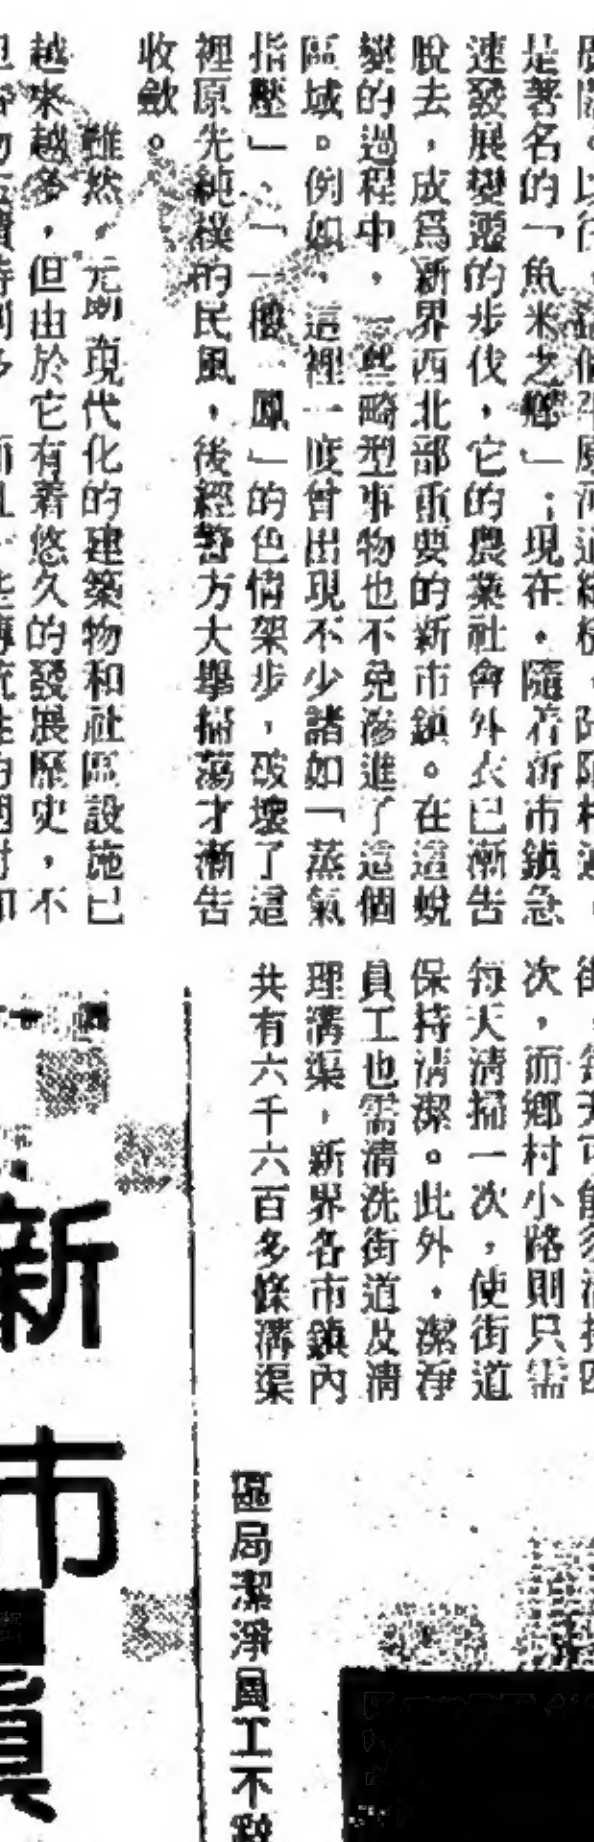 是著名的「魚米之鄉」；現在，隨着新市鎮急
速發展變遷的步伐，它的農業社會外衣已漸告
脫去，成爲新界西北部重要的新市鎮。在這蛻
變的過程中，一些畸型事物也不免滲進了這個
區域。例如，這裡一度曾出現不少諸如「蒸氣
指壓」、「一樓一鳳」的色情架步，破壞了這
裡原先純樸的民風，後經警方大舉掃蕩才漸告
收歛。
雖然，元朗現代化的建築物和社區設施已
越來越多，但由於它有着悠久的發展歷史，不
次，而鄉村小路則只需
每天清掃一次，使街道
保持清潔。此外，潔淨
員工也需清洗街道及清
理溝渠，新界各市鎮內
共有六千六百多條溝渠
區局潔淨員工不
新市